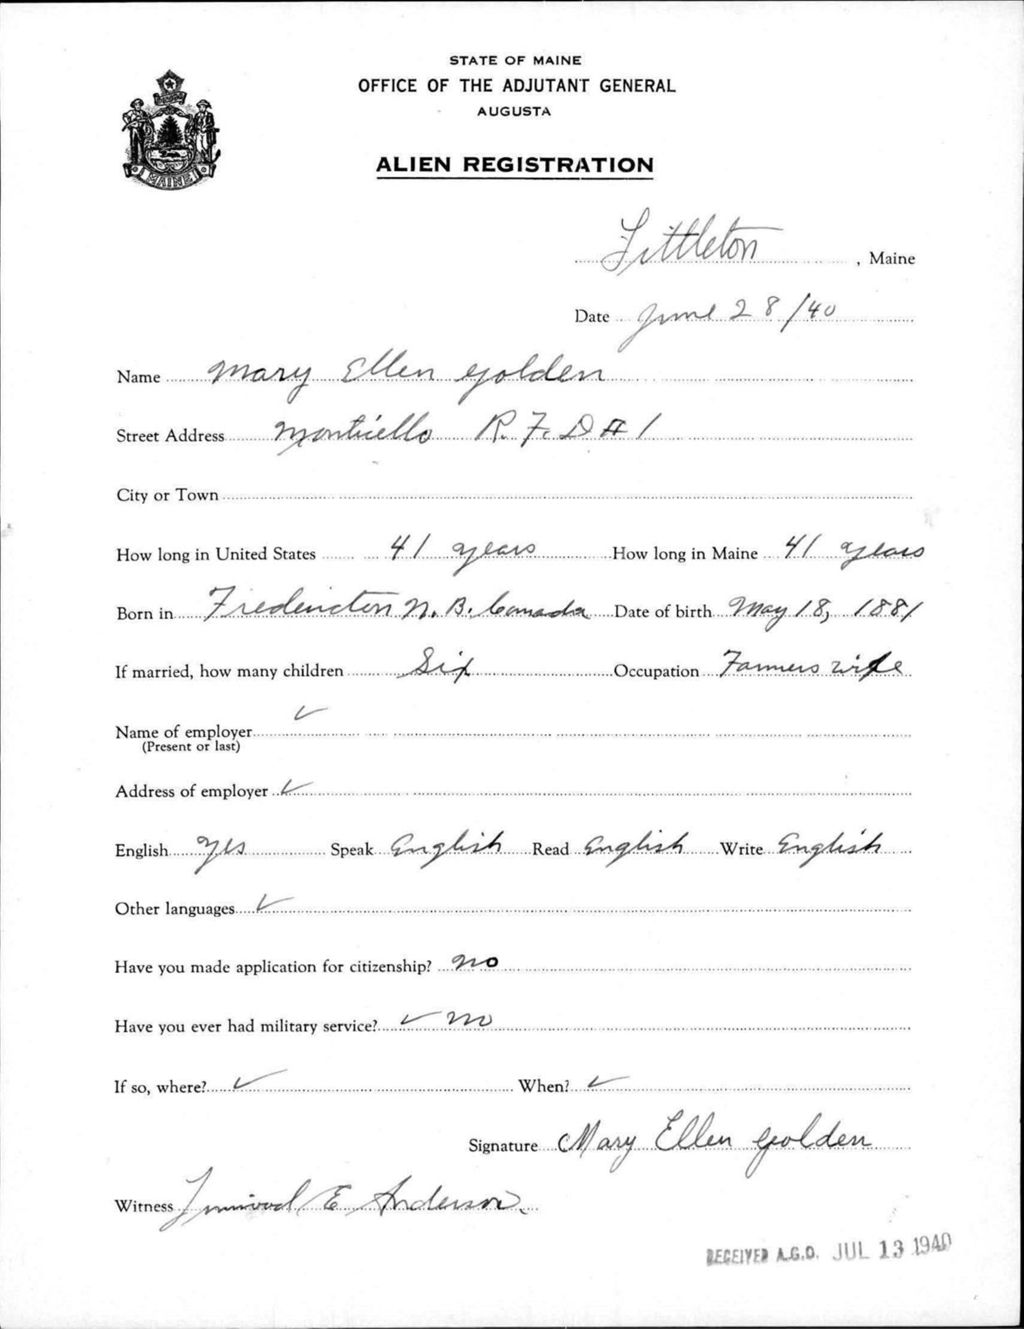 STATE OF MAINE
OFFICE OF THE ADJUTANT GENERAL
AUGUSTA
ALIEN REGISTRATION
MAINE
Littleton, Maine
Date June 28/40
Name Mary Ellen Golden
Street Address Monticello R.F.D #1
City or Town
How long in United States 41 years How long in Maine 41 years
Born in Fredericton N.B. Canada Date of birth May 18, 1881
If married, how many children Six Occupation Farmers wife
Name of employer ✓
(Present or last)
Address of employer ✓
English Yes Speak English Read English Write English
Other languages ✓
Have you made application for citizenship? No
Have you ever had military service? ✓ no
If so, where? ✓ When? ✓
Signature Mary Ellen Golden
Witness Linwood E Anderson.
RECEIVED A.G.O. JUL 13 1940